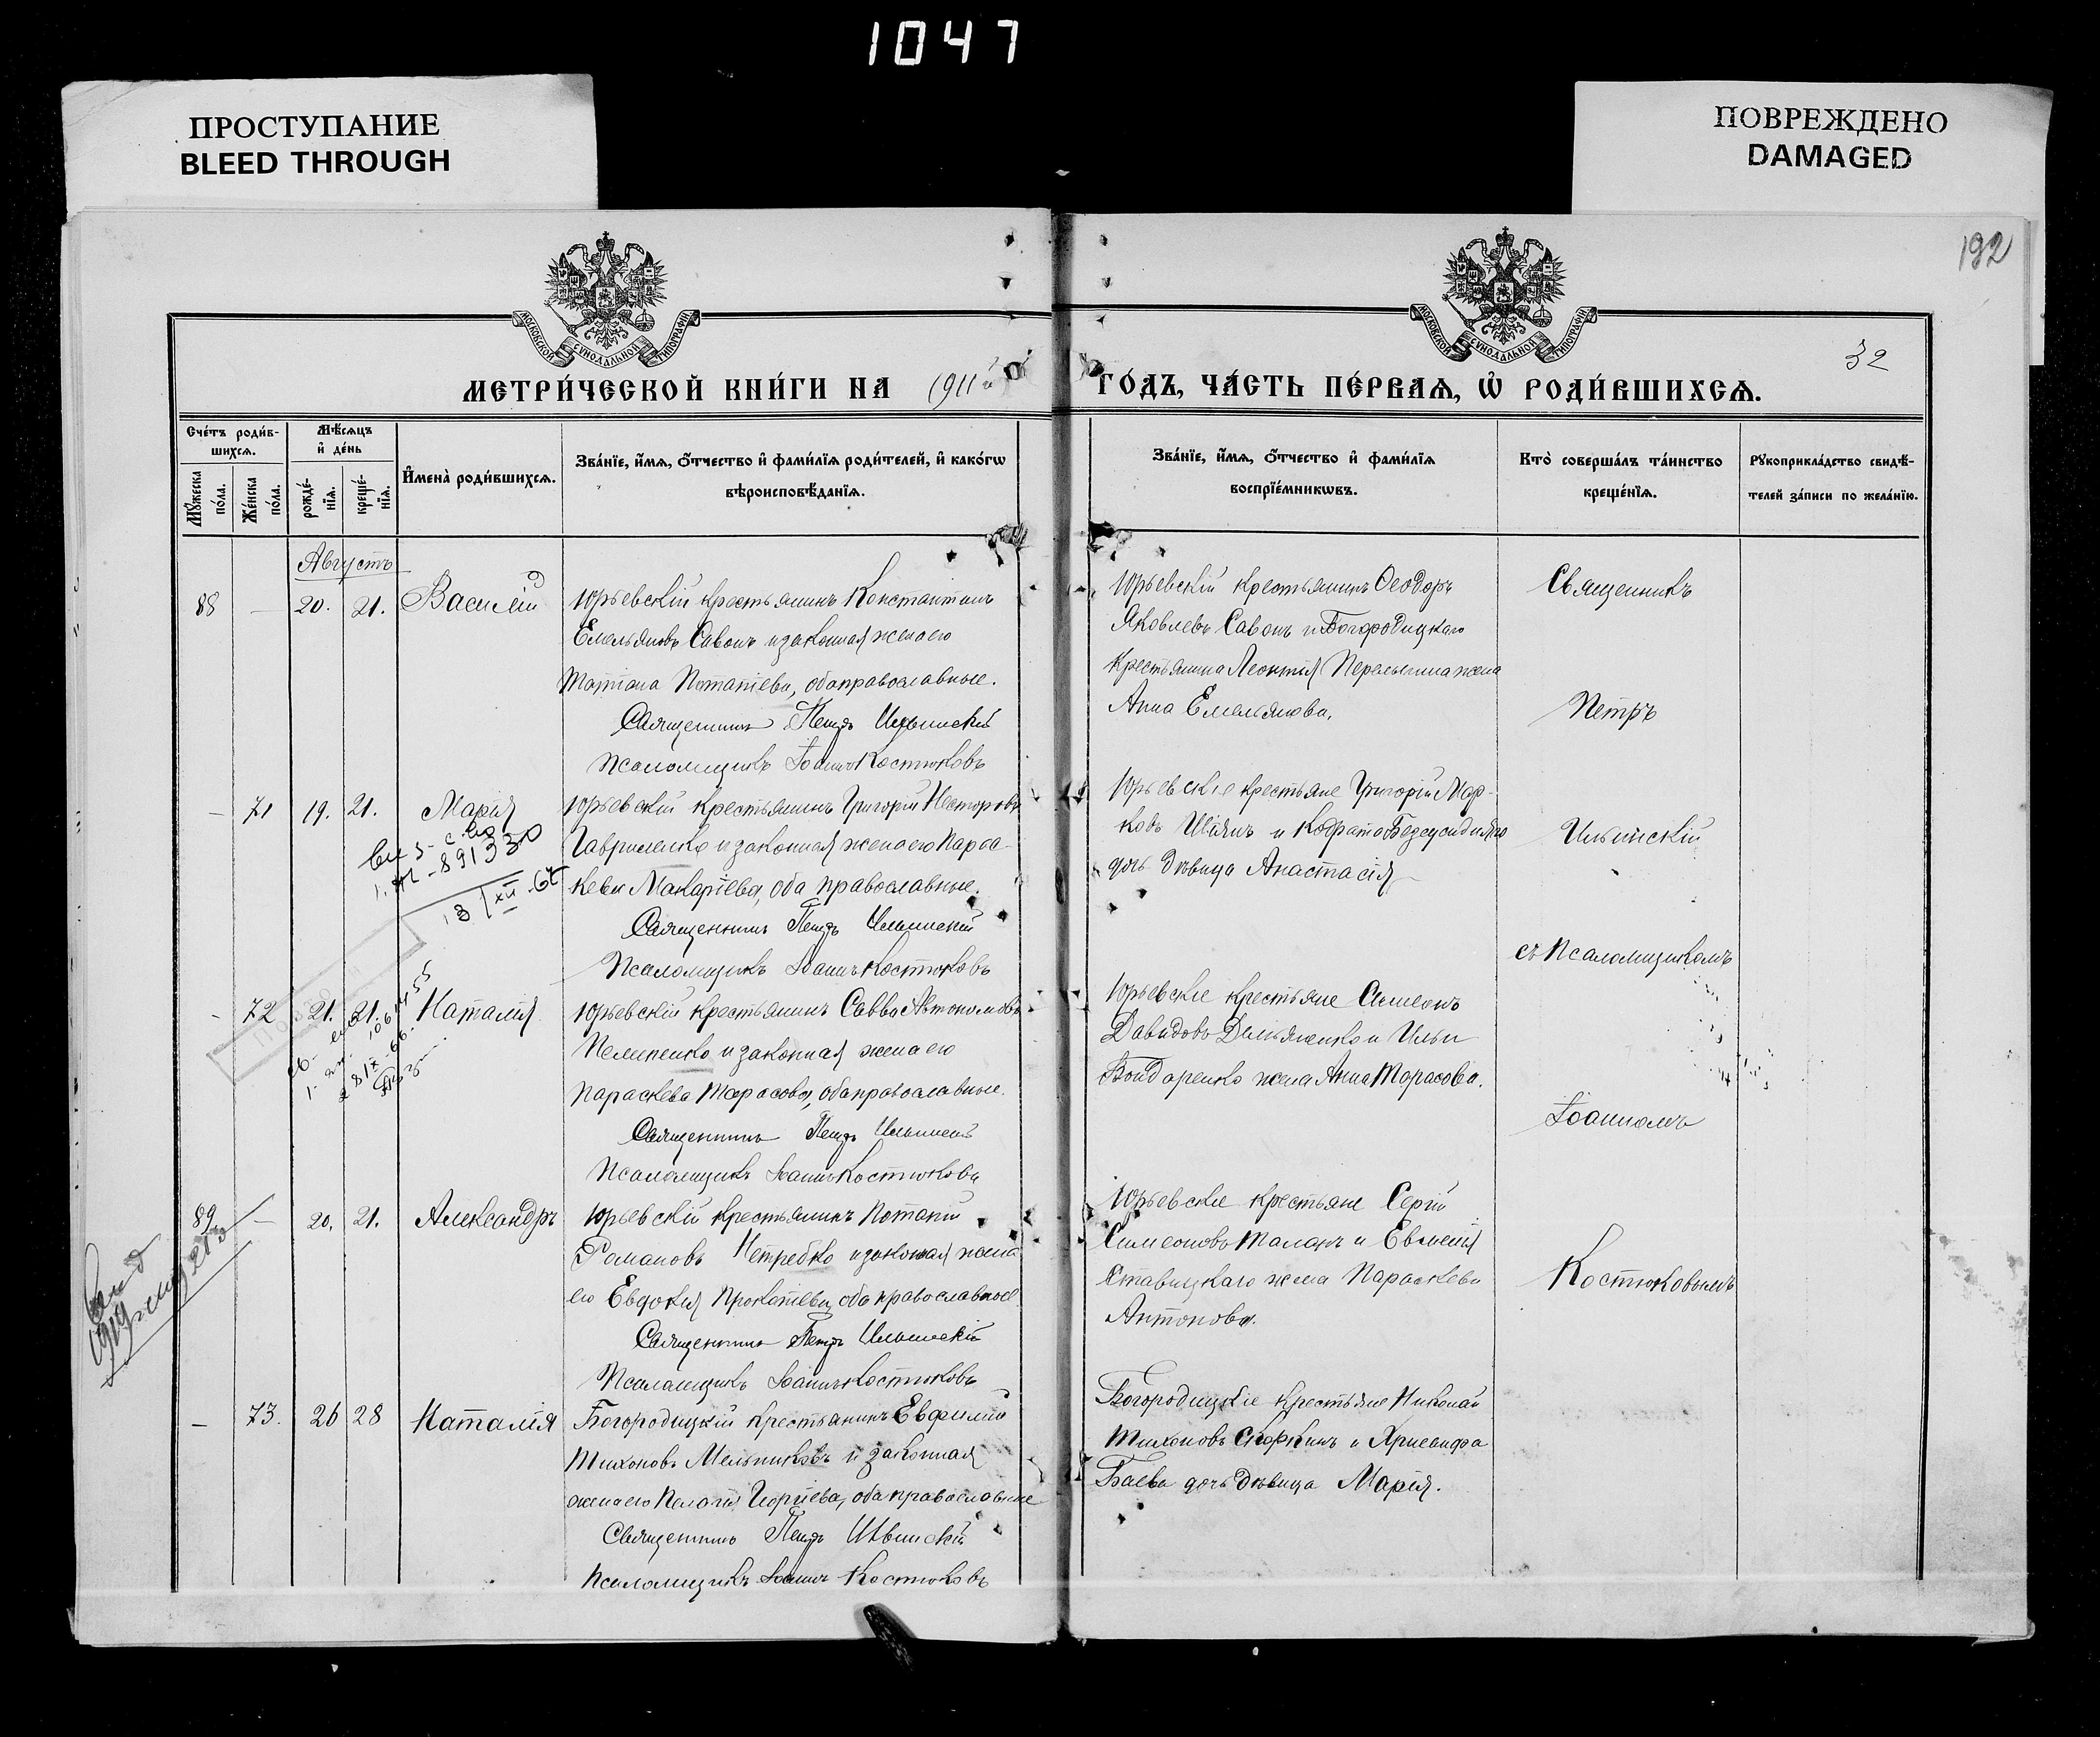 1047
ПРОСТУПАНИЕ
BLEED THROUGH
ПОВРЕЖДЕНО
DAMAGED
192
32
МОСКОВСКОЙ СѴНОДАЛЬНОЙ ТИПОГРАФІИ
МОСКОВСКОЙ СѴНОДАЛЬНОЙ ТИПОГРАФІИ
МЕТРИ́ЧЕСКОЙ КНИ́ГИ НА 1911й ГО́ДЪ, ЧА́СТЬ ПЕ́РВАѦ, Ѡ҆ РОДИ́ВШИХСѦ.
Сче́тъ роди́в-
шихсѧ.
Мꙋ́жеска по́ла.
Же́нска по́ла.
Мѣ́сѧцъ
и҆ де́нь
рожде́-
нїѧ.
креще́-
нїѧ.
И҆мена̀ роди́вшихсѧ.
Зва́нїе, и҆́мѧ, ѻ҆́тчество и҆ фами́лїѧ роди́телей, и҆ како́гѡ
вѣроисповѣ́данїѧ.
Зва́нїе, и҆́мѧ, ѻ҆́тчество и҆ фами́лїѧ
воспрїе́мникѡвъ.
Кто̀ соверша́лъ та́инство
креще́нїѧ.
Рꙋкоприкла́дство свидѣ́-
телей за́писи по жела́нїю.
Августъ
88 — 20. 21. Василій
Юрьевскій крестьянинъ Константинъ
Емельяновъ Савонъ и законная жена его
Татіана Потапіева, оба православные.
Священникъ Петръ Ильинскій
Псаломщикъ Іоаннъ Костюковъ
Юрьевскій крестьянинъ Ѳеодоръ
Яковлевъ Савонъ и Богородицкаго
крестьянина Леонтія Перелыгина жена
Анна Емельянова.
Священникъ
Петръ
Ильинскій
съ Псаломщикомъ
Іоанномъ
Костюковымъ
— 71 19. 21. Марія
1. 891330
18/XII-64
Юрьевскій крестьянинъ Григорій Несторовъ
Гавриленко и законная жена его Parас-
кева Макаріева, оба православные.
Священникъ Петръ Ильинскій
Псаломщикъ Іоаннъ Костюковъ
Юрьевскіе крестьяне Григорій Мар-
ковъ и
дочь дѣвица Анастасія
- 72 21. 21. Наталія
Юрьевскій крестьянинъ Савва Автономовъ
Пелипенко и законная жена его
Параскева Тарасова, оба православные.
Священникъ Петръ Ильинскій
Псаломщикъ Іоаннъ Костюковъ
Юрьевскіе крестьяне Симеонъ
Давидовъ Демьяненко и Ильи
Бондаренко жена Анна Тарасова.
89 — 20. 21. Александръ
Юрьевскій крестьянинъ Потапій
Романовъ Нетребко и законная жена
его Евдокія Прокопіева, оба православные
Священникъ Петръ Ильинскій
Псаломщикъ Іоаннъ Костюковъ
Юрьевскіе крестьяне Сергій
Симеоновъ Таланъ и Евменія
Ставицкаго жена Параскева
Антонова.
— 73. 26 28 Наталія
Богородицкій крестьянинъ Евфимій
Тихоновъ Мельниковъ и законная
жена его Пелагія Георгіева, оба православные
Священникъ Петръ Ильинскій
Псаломщикъ Іоаннъ Костюковъ
Богородицкіе крестьяне Николай
Тихоновъ и Хрисанфа
Баева дочь дѣвица Марія.